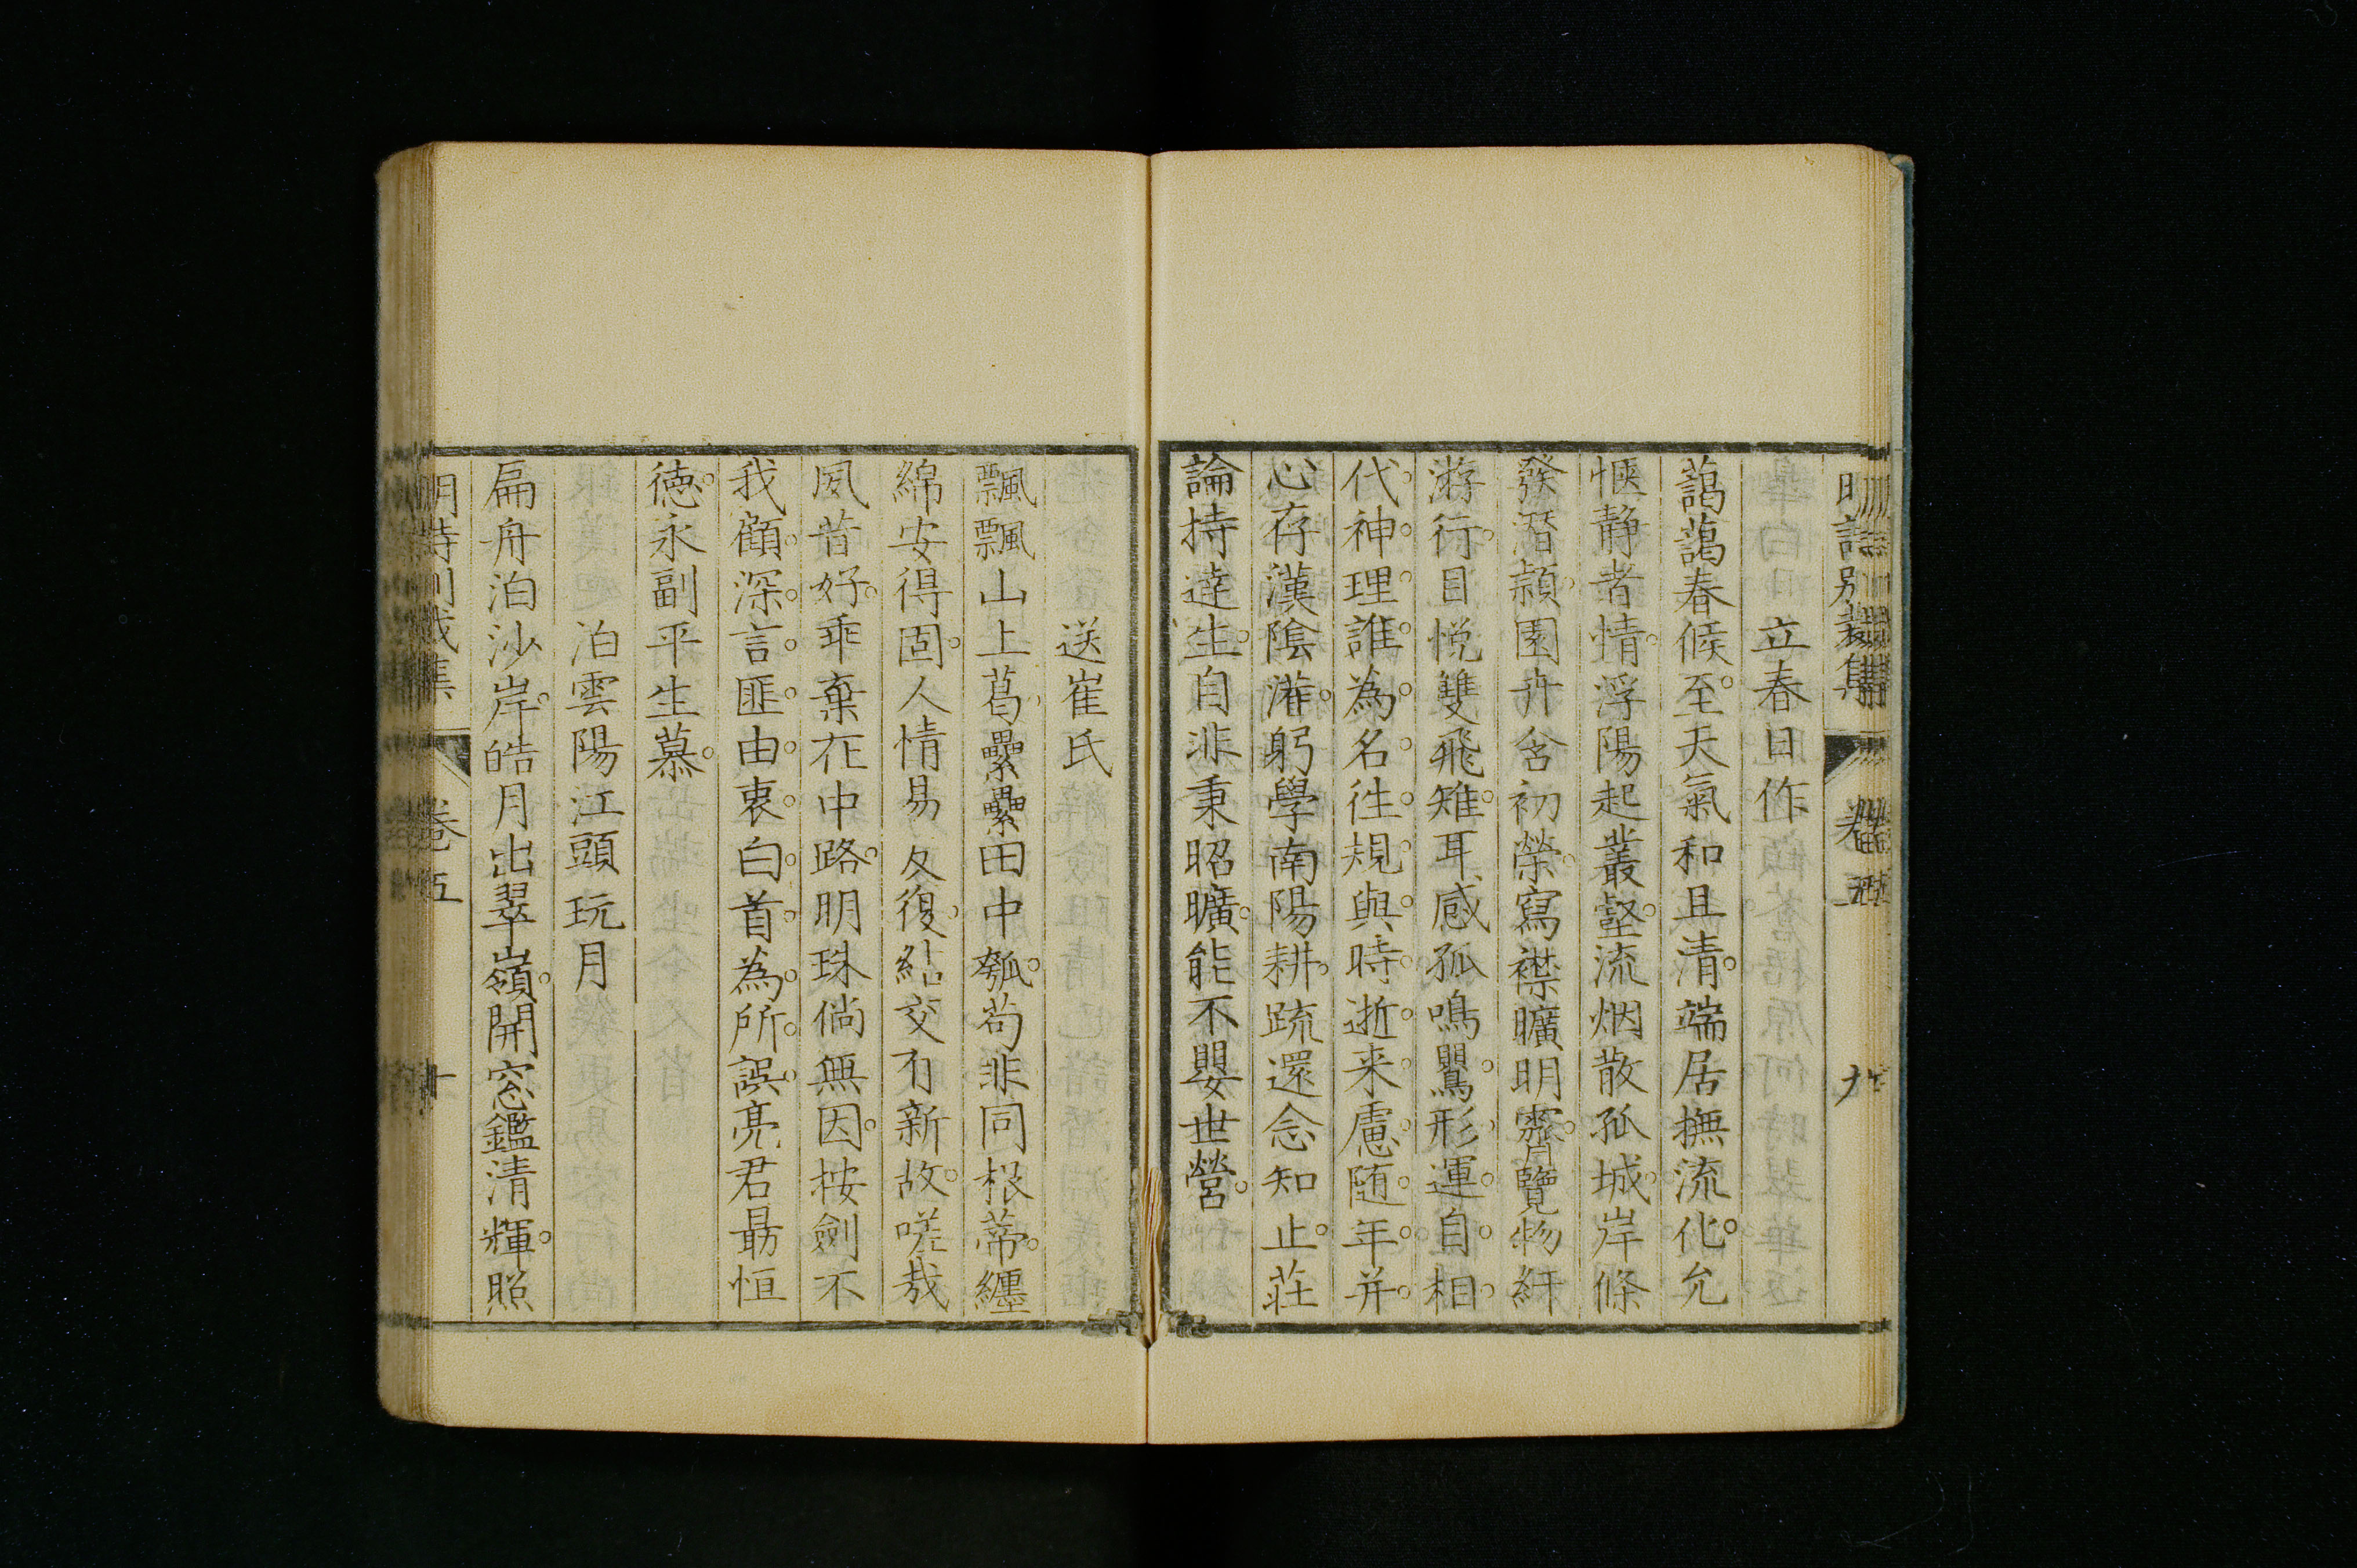 立春日作
藹藹春候至天氣和且清端居撫流化允
愜静者情浮陽起叢壑流烟散孤城岸條
發潛穎園卉含初榮寫襟曠明霽覽物紆
游行目悦雙飛雉耳感孤鳴鸎形運自相
代神理誰為名徃規與時逝来慮随年并
心存漢陰灌躬學南陽耕疏還念知止莊
論持達生自非秉昭曠能不嬰世營
送崔氏
飄飄山上葛纍纍田中瓠苟非同根蒂纏
綿安得固人情易久復結交有新故嗟哉
夙昔好乖棄在中路明珠倘無因按劍不
我顧深言匪由衷白首為所誤亮君最恒
徳永副平生慕
泊雲陽江頭玩月
扁舟泊沙岸皓月出翠嶺開窓鑑清輝照
卷五